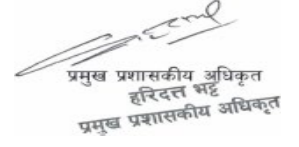 प्रमुख प्रशासकीय अधिकृत
हरिदत्त भट्ट
प्रमुख प्रशासकीय अधिकृत